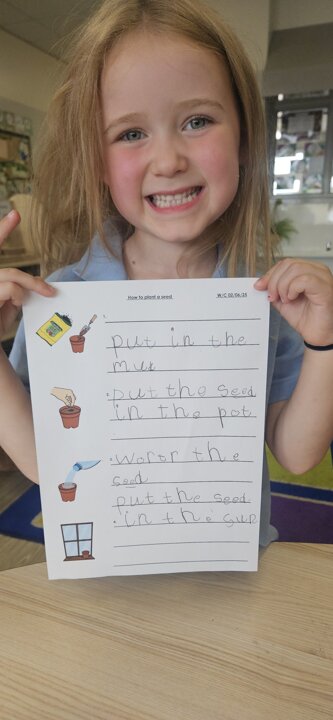 How to plant a seed W/C 02/06/25
put in the
muk
put the seed
in the pot
.
woror the
seed
put the seed
in the sun